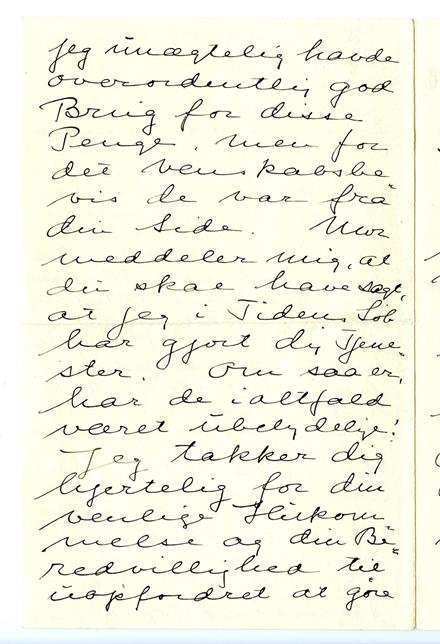 jeg unægtelig havde
overordentlig god
Brug for disse
Penge, men for
det venskabsbe-
vis de var fra
din Side. Mor
meddeler mig, at
du skal have sagt,
at jeg i Tidens Løb
har gjort dig Tjene-
ster. Om saa er,
har de ialtfald
været ubetydelige!
Jeg takker dig
hjertelig for din
venlige Hukom-
melse og din Be-
redvillighed til
uopfordret at gøre